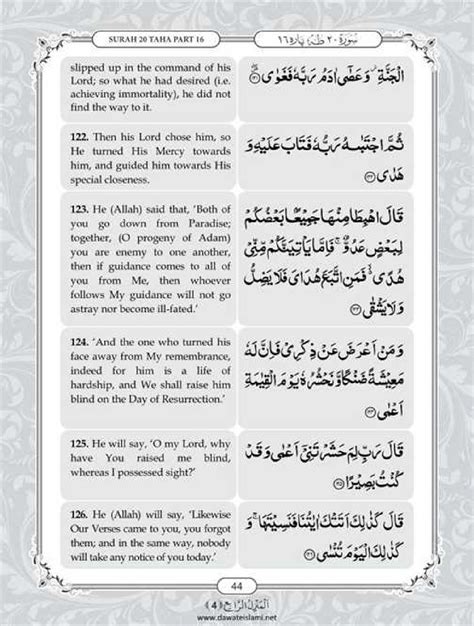 SURAH 20 TAHA PART 16
سُوْرَة ٢٠ طٰهٰ، پاره ١٦
slipped up in the command of his
Lord; so what he had desired (i.e.
achieving immortality), he did not
find the way to it.
الْجَنَّةِ ۫ وَعَصٰۤى اٰدَمُ رَبَّهٗ فَغَوٰى
122. Then his Lord chose him, so
He turned His Mercy towards
him, and guided him towards His
special closeness.
ثُمَّ اجْتَبٰىهُ رَبُّهٗ فَتَابَ عَلَيْهِ وَ
هَدٰى ﴿۱۲۲﴾
123. He (Allah) said that, ‘Both of
you go down from Paradise;
together, (O progeny of Adam)
you are enemy to one another,
then if guidance comes to all of
you from Me, then whoever
follows My guidance will not go
astray nor become ill-fated.’
قَالَ اهْبِطَا مِنْهَا جَمِيْعًۢا بَعْضُكُمْ
لِبَعْضٍ عَدُوٌّ ۚ فَاِمَّا يَاْتِيَنَّكُمْ مِّنِّيْ
هُدًى ۙ۬ فَمَنِ اتَّبَعَ هُدَايَ فَلَا يَضِلُّ
وَلَا يَشْقٰى ﴿۱۲۳﴾
124. ‘And the one who turned his
face away from My remembrance,
indeed for him is a life of
hardship, and We shall raise him
blind on the Day of Resurrection.’
وَمَنْ اَعْرَضَ عَنْ ذِكْرِيْ فَاِنَّ لَهٗ
مَعِيْشَةً ضَنْكًا وَّ نَحْشُرُهٗ يَوْمَ الْقِيٰمَةِ
اَعْمٰى ﴿۱۲۴﴾
125. He will say, ‘O my Lord, why
have You raised me blind,
whereas I possessed sight?’
قَالَ رَبِّ لِمَ حَشَرْتَنِيْۤ اَعْمٰى وَقَدْ
كُنْتُ بَصِيْرًا ﴿۱۲۵﴾
126. He (Allah) will say, ‘Likewise
Our Verses came to you, you forgot
them; and in the same way, nobody
will take any notice of you today.’
قَالَ كَذٰلِكَ اَتَتْكَ اٰيٰتُنَا فَنَسِيْتَهَا ۚ وَ
كَذٰلِكَ الْيَوْمَ تُنْسٰى ﴿۱۲۶﴾
44
اَلْمَنْزِلُ الرَّابِع ﴿4﴾
www.dawateislami.net